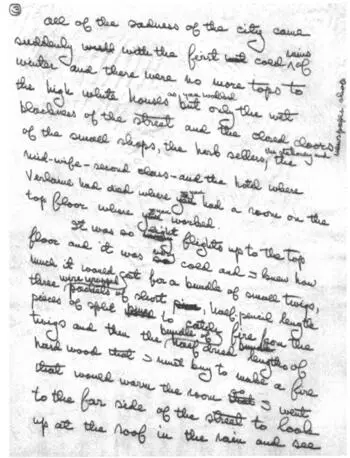 ③
All of the sadness of the city came
suddenly with the first cold rains of
winter and there were no more tops to
the high white houses as you walked but only the wet
blackness of the street and the closed doors
of the small shops, the herb sellers, the stationery and newspaper shops the
mid-wife - second class - and the hotel where
Verlaine had died where you had a room on the
top floor where you worked.
It was so eight flights up to the top
floor and it was so cold and I knew how
much it would cost for a bundle of small twigs,
three wire wrapped packets of short pine, half pencil length
pieces of split to catch fire from the
twigs and then the bundle of half dried lengths of
hard wood that I must buy to make a fire
that would warm the room so I went
to the far side of the street to look
up at the roof in the rain and see